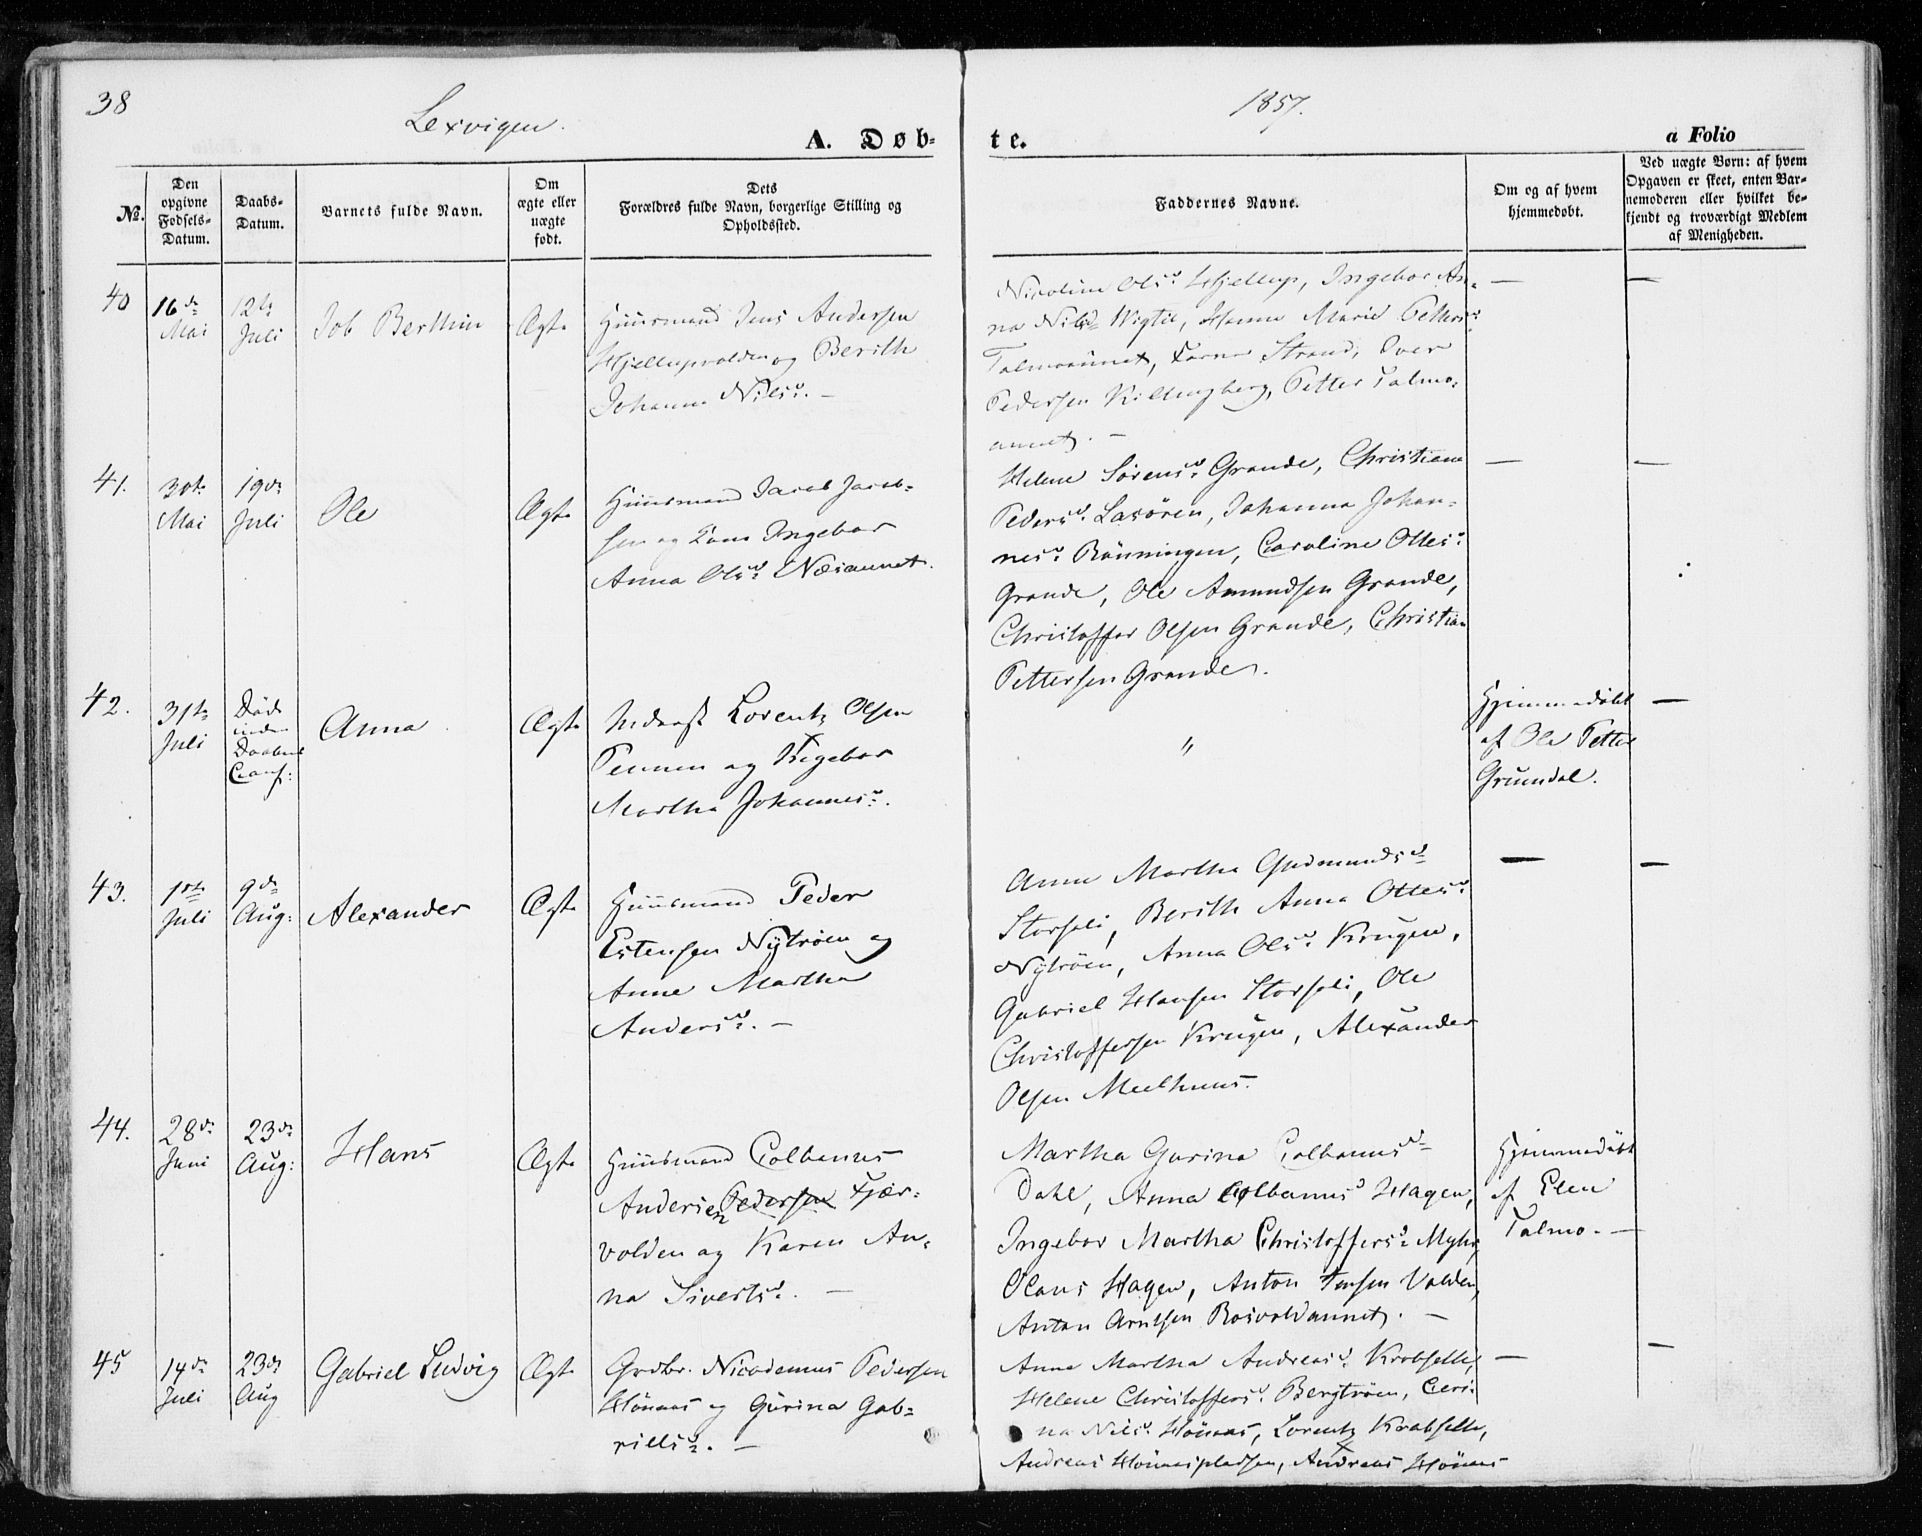 38
Lexvigen.
1857.
A. Døb-
te.
a Folio
No.
Den opgivne Fødsels-Datum.
Daabs-Datum.
Barnets fulde Navn.
Om ægte eller uægte født.
Dets Forældres fulde Navn, borgerlige Stilling og Opholdssted.
Faddernes Navne.
Om og af hvem hjemmedøbt.
Ved uægte Børn: af hvem Opgaven er skeet, enten Barnemoderen eller hvilket bekjendt og troværdigt Medlem af Menigheden.
40
16de Mai
12te Juli
Job Berthin
Ægte
Huusmand Jens Andersen
Hjellupvalden og Berith
Johanna Nilsd. –
Nicoline Olsd Hjellup, Ingebor An-
na Nilsd Wigtil, Hanna Marie Petters
Talmoaunet, Strand, Iver
Pedersen Killingberg, Petter Talmo-
aunet. –
—
—
41.
30te Mai
19de Juli
Ole
Ægte
Huusmand Jacob Jacob-
sen og Kone Ingebor
Anna Olsd. Næsaunet.
Helene Sørensd Grande, Christiane
Pedersd. Lasøren, Johanna Johan-
nesd. Rønningen, Caroline Ottesd.
Grande, Ole Amundsen Grande,
Christoffer Olsen Grande, Christian
Pettersen Grande.
—
—
42.
31te Juli
Død inden Daabens Conf:
Anna
Ægte
Inderst Lorentz Olsen
Pennen og Ingebor
Martha Johannesd.
"
Hjemmedøbt
af Ole Petter
Grundal.
—
43.
1ste Juli
9de Aug:
Alexander
Ægte
Huusmand Peder
Estensen Nytrøen og
Anne Martha
Andersd. –
Anne Martha Gudmundsd
Storseli, Berith Anna Ottesd.
Nytrøen, Anna Olsd. Krugen,
Gabriel Hansen Storseli, Ole
Christoffersen Krugen, Alexander
Olsen Meelhuus.
—
—
44.
28de Juni
23de Aug:
Hans
Ægte
Huusmand Colbanus
Andersen Pedersen Fjær-
volden og Karen An-
na Sivertsd. –
Martha Gurina Colbanusd
Dahl, Anna Colbanusd Hagen,
Ingebor Martha Christoffersd. Myhr,
Olaus Hagen, Anton Jensen Valden,
Anton Arntsen Rosvoldaunet. –
Hjemmedøbt
af Elen
Talmo. –
45
14de Juli
23de Aug
Gabriel Ludvig
Ægte
Grdbr. Nicodemus Pedersen
Hønaas og Gurina Gab-
rielsd. –
Anne Martha Andreasd. Krobselle,
Helene Christoffersd. Bergtrøen, Geri-
na Nilsd. Hønaas, Lorentz Krobselle,
Andreas Hønaaspladsen, Andreas Hønaas
—
—